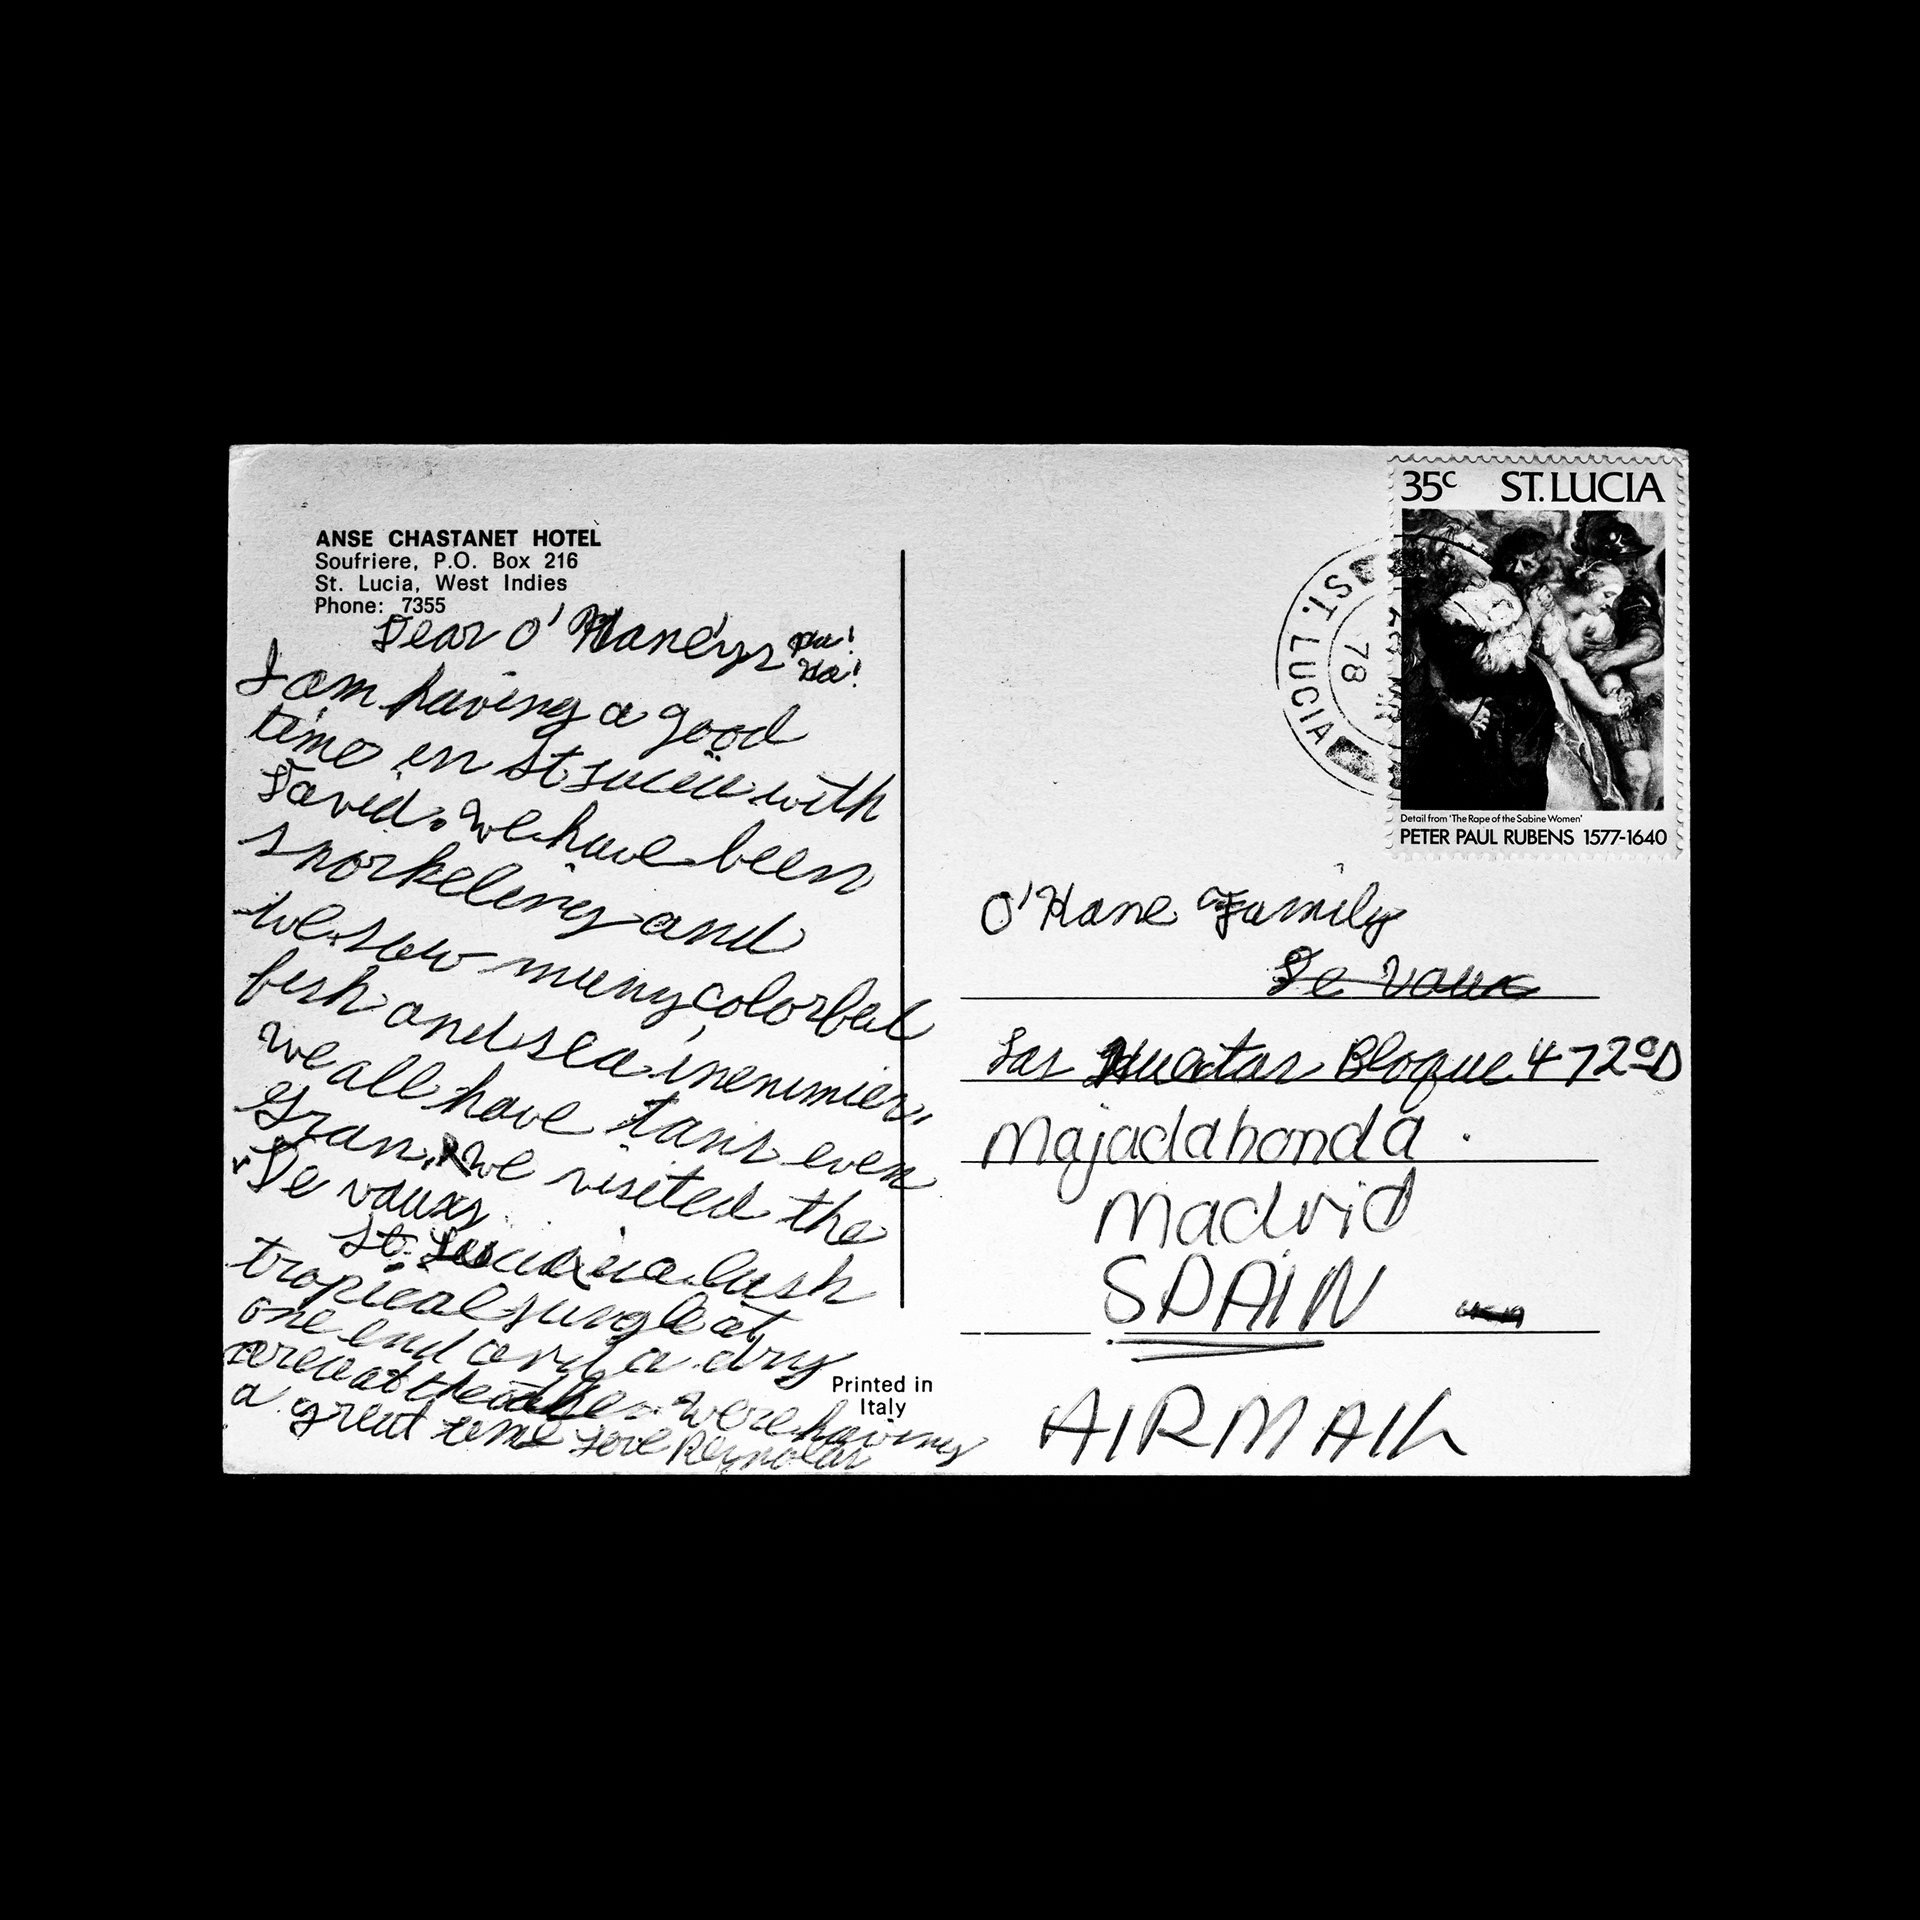 ANSE CHASTANET HOTEL
Soufriere, P.O. Box 216
St. Lucia, West Indies
Phone: 7355
Dear O'Haneys Ha!
Ha!
I am having a good
time in St Lucia with
David. We have been
snorkeling and
we saw many colorful
fish and sea
we all have tans even
Gran. We visited the
De Vauxs
St. Lucia is a lush
tropical jungle at
one end and a dry
area at the other. Were having
a great time Love
Printed in
Italy
35c ST. LUCIA
Detail from 'The Rape of the Sabine Women'
PETER PAUL RUBENS 1577-1640
ST. LUCIA
78
O'Hane Family
De Vaux
Las Huertas Bloque 47 2º D
Majadahonda
Madrid
SPAIN
AIRMAIL